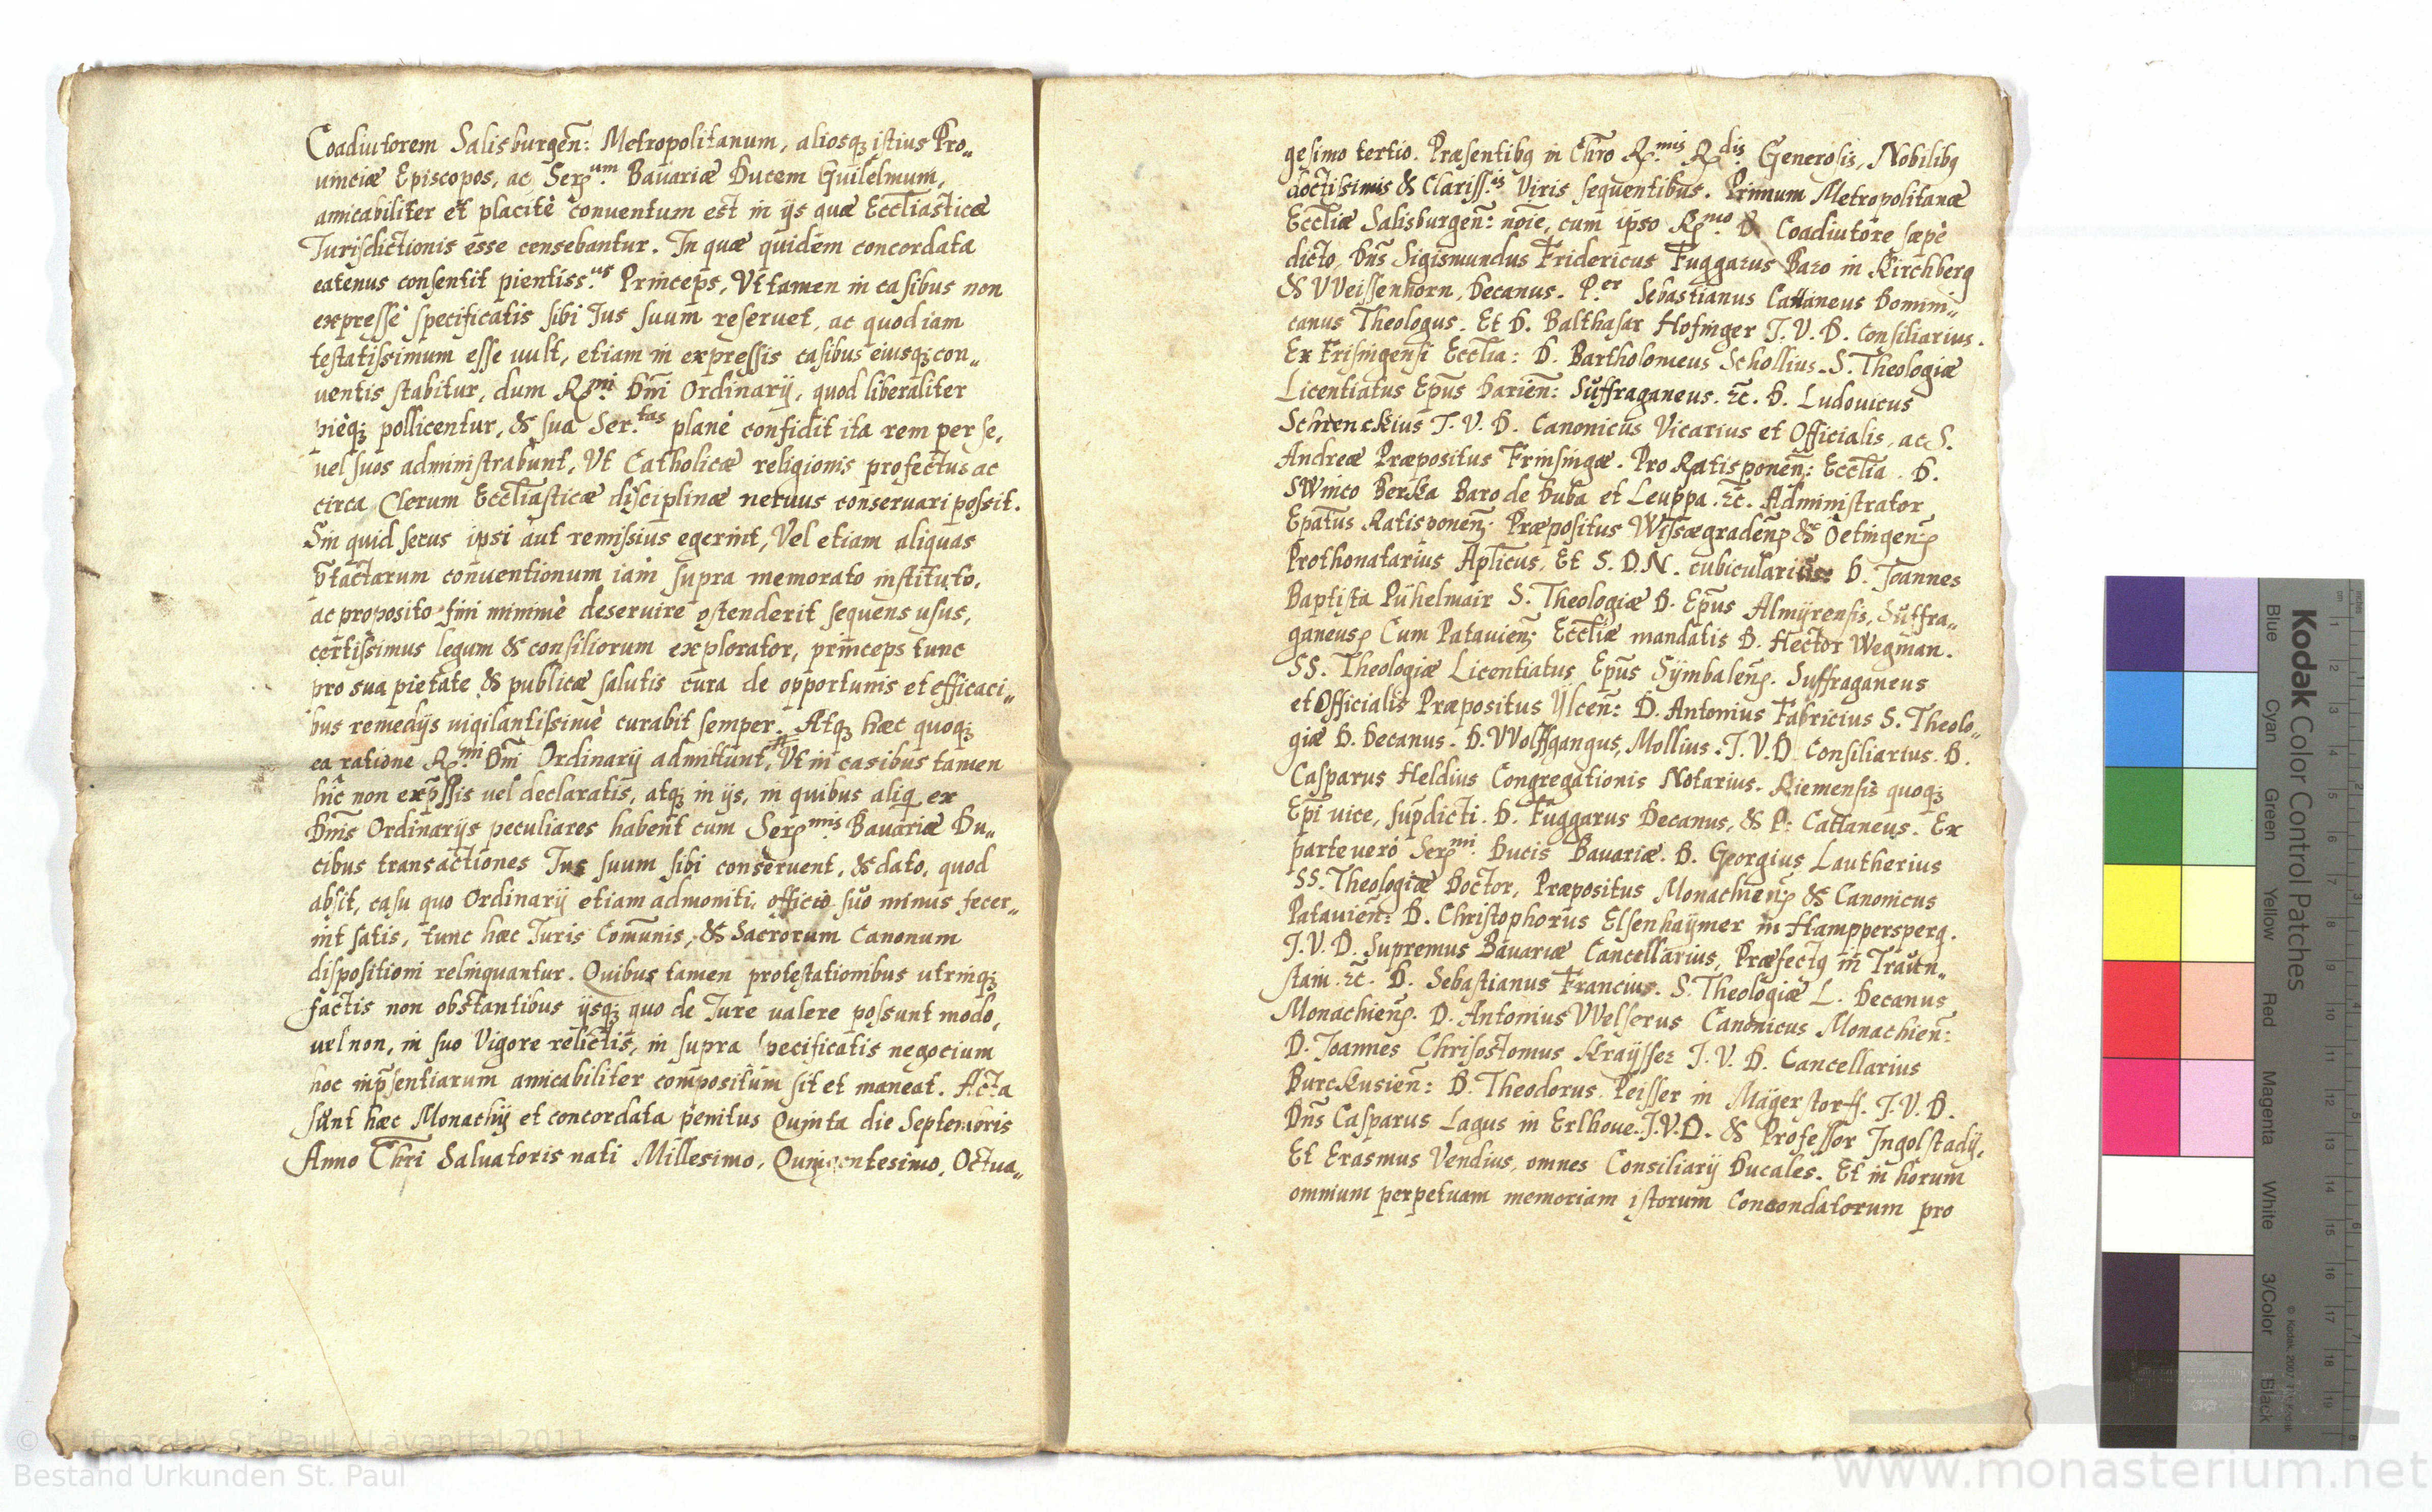 Coadiutorem Salisburgen̄: Metropolitanum, aliosq; istius Pro„
uinciæ Episcopos, ac Ser.um Bauariæ Ducem Guilelmum,
amicabiliter et placitè conuentum est in ijs quæ Eccl̄iasticæ
Jurisdictionis esse censebantur. In quæ quidem concordata
eatenus consentit pientiss.us Princeps, Vt tamen in casibus non
expressè specificatis sibi Jus suum reseruet, ac quod iam
testatissimum esse uult, etiam in expressis casibus eiusq; con„
uentis stabitur, dum R.mi Dn̄i Ordinarij, quod liberaliter
pièq; pollicentur, & sua Ser.tas planè confidit ita rem per se,
uel suos administrabunt, Vt Catholicæ religionis profectus ac
circa Clerum Eccl̄iasticæ disciplinæ neruus conseruari possit.
Sin quid secus ipsi aut remissius egerint, Vel etiam aliquas
p̄tactarum conuentionum iam supra memorato instituto,
ac proposito fini minimè deseruire ostenderit sequens usus,
certissimus legum & consiliorum explorator, princeps tunc
pro sua pietate & publicæ salutis cura de opportunis et efficaci„
bus remedijs uigilantissimè curabit semper. Atq; hæc quoq;
ea ratione R.mi Dn̄i Ordinarij admittunt, Vt in casibus tamen
hîc non exp̄ssis uel declaratis, atq; in ijs, in quibus aliq ex
Dn̄is Ordinarijs peculiares habent cum Ser.mis Bauariæ Du„
cibus transactiones Jus suum sibi conseruent, & dato, quod
absit, casu quo Ordinarij etiam admoniti, officio suo minus fecer„
int satis, tunc hæc Juris Com̄unis, & Sacrorum Canonum
dispositioni relinquantur. Quibus tamen protestationibus utrinq;
factis non obstantibus ijsq; quo de Jure ualere possunt modo,
uel non, in suo Vigore relictis, in supra specificatis negocium
hoc inp̄sentiarum amicabiliter compositum sit et maneat. Acta
sunt hæc Monachij et concordata penitus Quinta die Septembris
Anno Chr̄i Saluatoris nati Millesimo, Quingentesimo, Octua„
gesimo tertio. Præsentibq in Chr̄o R.mis R.dis Generosis, Nobilibq
doctissimis & Clariss.is Viris sequentibus. Primum Metropolitanæ
Eccl̄iæ Salisburgen̄: noīe, cum ipso R.mo D. Coadiutore sæpè
dicto, Dn̄s Sigismundus Fridericus Fuggarus Baro in Kirchberg
& VVeissenhorn, Decanus. P.er Sebastianus Cattaneus Domini„
canus Theologus. Et D. Balthasar Hofinger J. V. D. Consiliarius.
Ex Frisingensi Eccl̄ia: D. Bartholomeus Schollius. S. Theologiæ
Licentiatus Ep̄us Darien̄: Suffraganeus. &c̄. D. Ludouicus
Schrenckius J. V. D. Canonicus Vicarius et Officialis, ac S.
Andreæ Præpositus Frinsingæ. Pro Ratisponen̄: Eccl̄ia. D.
SWinco Berka Baro de Duba et Leuppa. &c̄. Administrator
Ep̄atus Ratisponen̄: Præpositus Wissægraden̄ & Oetingen̄
Prothonatarius Ap̄licus, Et S. D. N. cubicularius: D. Joannes
Baptista Pühelmair S. Theologiæ D. Ep̄us Almÿrensis, Suffra„
ganeus Cum Patauien̄: Eccl̄iæ mandatis D. Hector Wegman.
SS. Theologiæ Licentiatus Ep̄us Sÿmbalen̄. Suffraganeus
et Officialis Præpositus Ylcen̄: D. Antonius Fabricius S. Theolo„
giæ D. Decanus. D. VVolffgangus, Mollius. J. V. D. Consiliarius. D.
Casparus Heldius Congregationis Notarius. Kiemensis quoq;
Ep̄i uice, sup̄dicti. D. Fuggarus Decanus, & P: Cattaneus. Ex
parte uerò Ser.mi Ducis Bauariæ. D. Georgius Lautherius
SS. Theologiæ Doctor, Præpositus Monachien̄ & Canonicus
Patauien̄: D. Christophorus Elsenhaÿmer in Hamppersperg.
J. V. D. Supremus Bauariæ Cancellarius, Præfectq in Traun„
stain. &c̄. D. Sebastianus Francius. S. Theologiæ L. Decanus
Monachien̄. D. Antonius VVelserus Canonicus Monachien̄:
D. Joannes Chrisostomus Kraÿsser J. V. D. Cancellarius
Burckusien̄: D. Theodorus Peisser in Mägerstorff. J. V. D.
Dn̄s Casparus Lagus in Erlhoue. J. V. D. & Professor Ingolstadij,
Et Erasmus Vendius, omnes Consiliarij Ducales. Et in horum
omnium perpetuam memoriam istorum Concondatorum pro
Kodak Color Control Patches
Blue Cyan Green Yellow Red Magenta White 3/Color Black
© Stiftsarchiv St. Paul / Lavanttal 2011
Bestand Urkunden St. Paul
www.monasterium.net